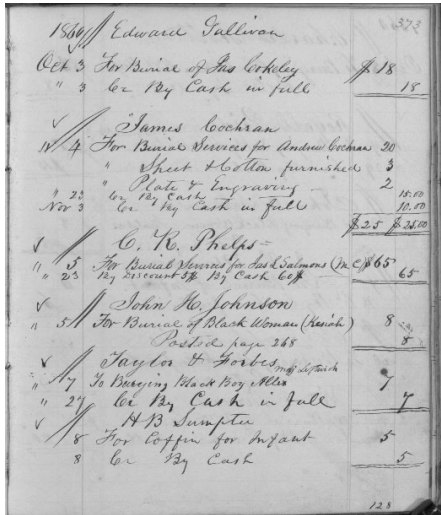 1869 Edward Sullivan 373
Oct 3 For Burial of Jas Cokeley $18
" 3 Cr By Cash in full 18
James Cochran
" 4 For Burial Services for Andrew Cochran 20
" Sheet & Cotton furnished 3
" Plate & Engraving 2
" 23 Cr By Cash 15.00
Nov 3 Cr By Cash in full 10.00
$25 $25.00
C. K. Phelps
" 5 For Burial Services for Jas L Salmons (M.C) $65
" 23 By Discount 5$ By Cash 60$ 65
John H. Johnson
" 5 For Burial of Black Woman (Kesiah) 8
Posted page 268 8
Taylor & Forbes
" 7 To Burying Black Boy Allen 7
" 27 Cr By Cash in full 7
H B Sumpter
8 For Coffin for Infant 5
8 Cr By Cash 5
128